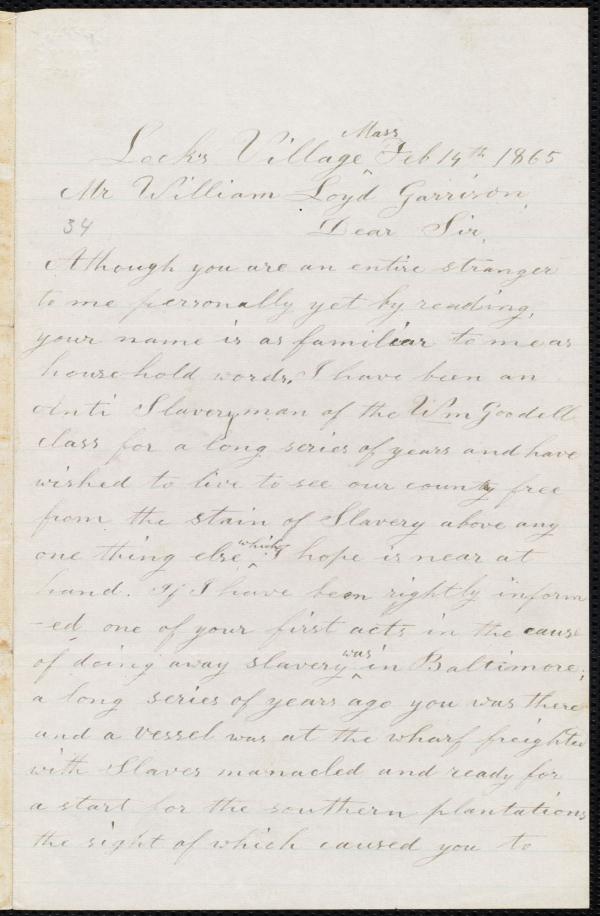 Mass
Lock's Village ^ Feb 14th 1865
Mr William Loyd Garrison,
34 Dear Sir,
Although you are an entire stranger
to me personally yet by reading,
your name is as familiar to me as
household words. I have been an
Anti Slavery man of the Wm Goodell
class for a long series of years and have
wished to live to see our county free
from the stain of Slavery above any
one thing else ^ which I hope is near at
hand. If I have been rightly inform
-ed one of your first acts in the cause
of doing away slavery ^ was in Baltimore;
a long series of years ago you was there
and a vessel was at the wharf freighted
with Slaves manacled and ready for
a start for the southern plantations
the sight of which caused you to